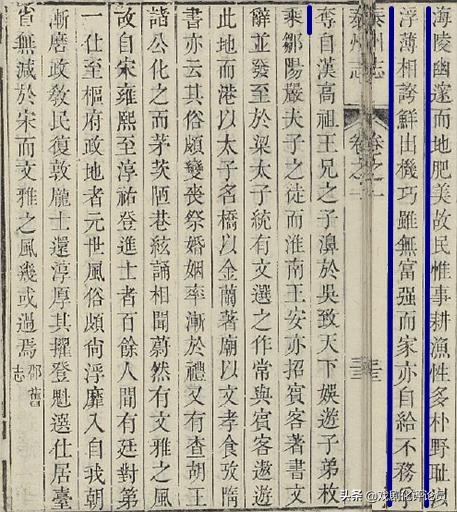 海陵幽邃而地肥美故民惟事耕漁性多朴野耻
浮薄相誇鮮出機巧雖無富强而家亦自給不務
泰州志 卷之一
奪自漢高祖王兄之子濞於吳致天下娛遊子弟枚
乘鄒陽嚴夫子之徒而淮南王安亦招賓客著書文
辭並發至於梁太子統有文選之作常與賓客遨遊
此地而港以太子名橋以金蘭著廟以文孝食攷隋
書亦云其俗頗變喪祭婚姻率漸於禮又有查胡王
諸公化之而茅茨陋巷絃誦相聞蔚然有文雅之風
故自宋雍熙至淳祐登進士者百餘人間有廷對第
一仕至樞府政地者元世風俗頗尙浮靡入自我朝
漸磨政敎民復敦龎士還淳厚其擢登魁選仕居臺
省無減於宋而文雅之風幾或過焉郡舊志
头条 @戏剧化评论员